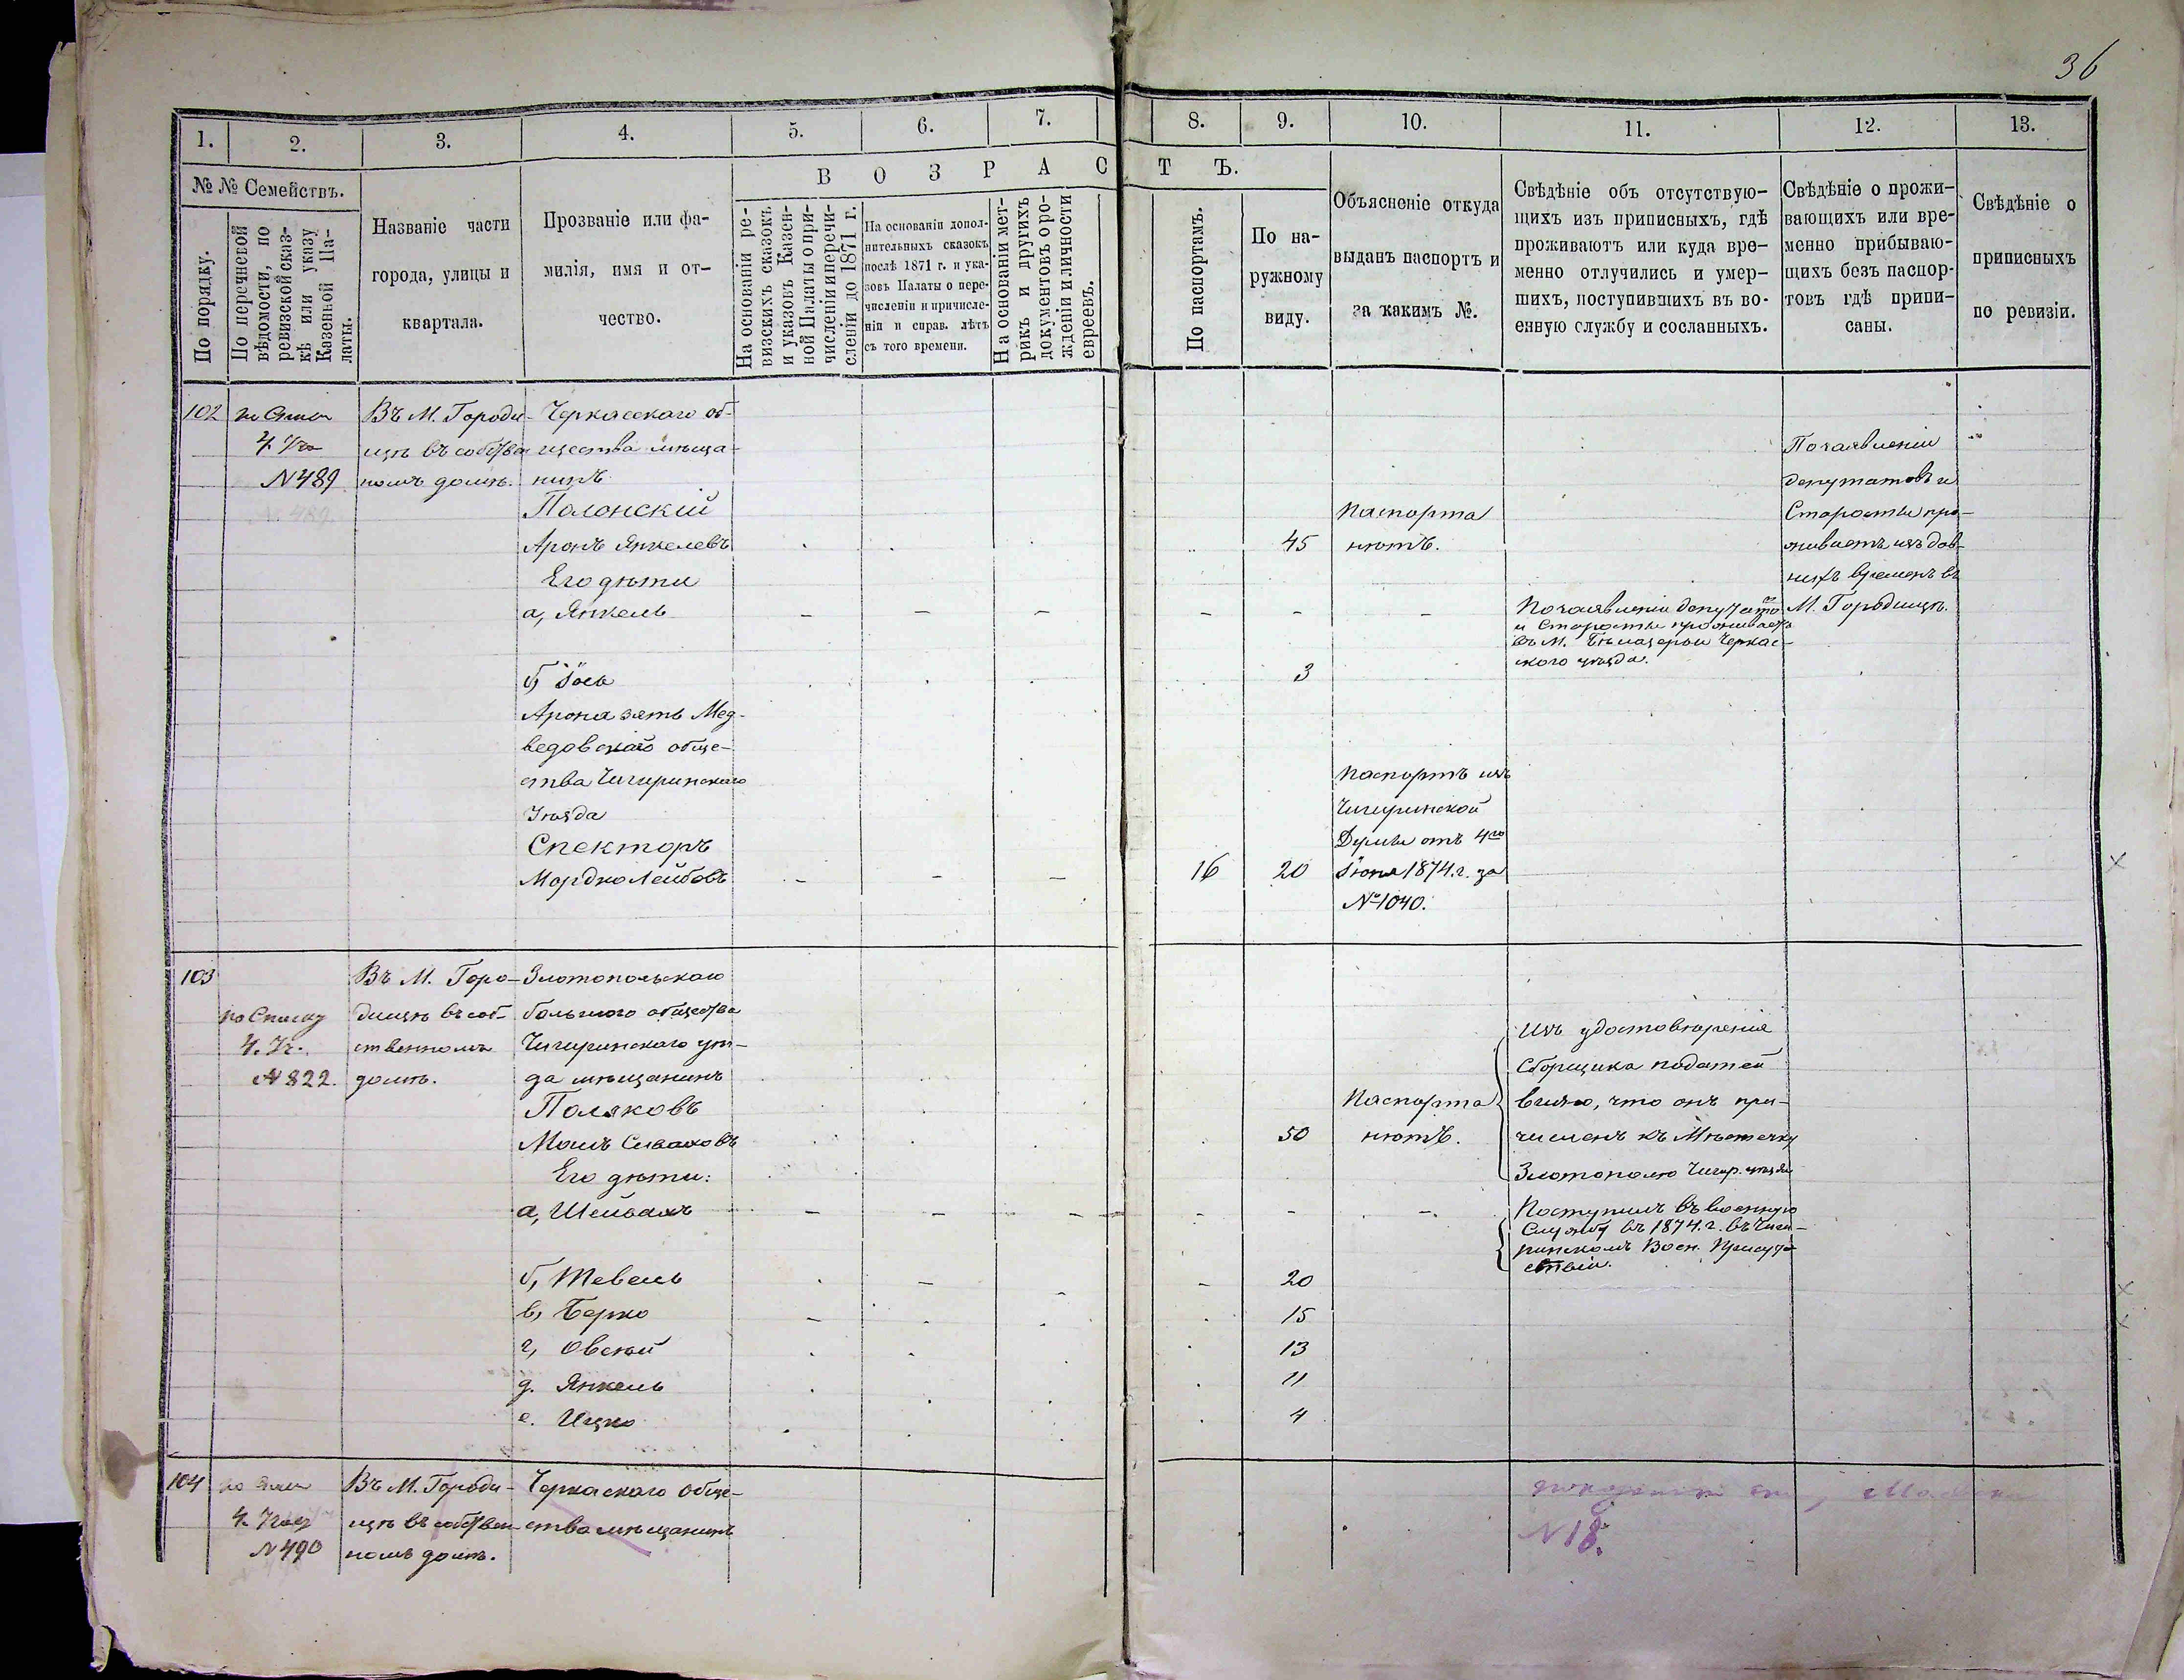 36
1.
2.
3.
4.
5.
6.
7.
8.
9.
10.
11.
12.
13.
№ № Семействъ.
По порядку.
По перечневой
вѣдомости, по
ревизской сказ-
кѣ или указу
Казенной Па-
латы.
Названіе части
города, улицы и
квартала.
Прозваніе или фа-
милія, имя и от-
чество.
ВОЗРАСТЪ.
На основаніи ре-
визскихъ сказокъ
и указовъ Казен-
ной Палаты о при-
численіи и перечи-
сленіи до 1871 г.
На основаніи допол-
нительныхъ сказокъ
послѣ 1871 г. и ука-
зовъ Палаты о пере-
численіи и причисле-
ніи и справ. лѣтъ
съ того времени.
На основаніи мет-
рикъ и другихъ
документовъ о ро-
жденіи и личности
евреевъ.
По паспортамъ.
По на-
ружному
виду.
Объясненіе откуда
выданъ паспортъ и
за какимъ №.
Свѣдѣніе объ отсутствую-
щихъ изъ приписныхъ, гдѣ
проживаютъ или куда вре-
менно отлучились и умер-
шихъ, поступившихъ въ во-
енную службу и сосланныхъ.
Свѣдѣніе о прожи-
вающихъ или вре-
менно прибываю-
щихъ безъ паспор-
товъ гдѣ припи-
саны.
Свѣдѣніе о
приписныхъ
по ревизіи.
102
N 489
Въ М. Городи-
щѣ въ собстве
номъ домѣ.
Черкасскаго об-
щества мѣща-
нинъ
Полонскій
Аронъ Янкелевъ
45
Паспорта
нютъ.
По заявленіи
депутатовъ и
Старосты про-
живаетъ изъ дав-
нихъ временъ въ
М. Городищѣ.
Его дѣти
а, Янкель
По заявленіи депутато
и Старосты проживаетъ
въ М. Бѣлазерьи Черкас-
ского уѣзда.
б, Іось
3
Арона зять Мед-
ведовскаго обще-
ства Чигиринскаго
Уѣзда
Спекторъ
Мордко Лейбовъ
16
20
Паспортъ изъ
Чигиринской
Думы отъ 4го
Іюня 1874 г. за
№ 1040.
103
по Списку
4. Уч.
N 822.
Въ М. Горо-
дищѣ въ соб-
ственномъ
домѣ.
Злотопольскаго
большого общества
Чигиринскаго уѣз-
да мѣщанинъ
Поляковъ
50
Паспорта
нютъ.
Изъ удостовѣренія
Сборщика податей
видно, что онъ при-
численъ къ Мѣстечку
Злотополю Чигир. уѣзда
Его дѣти:
а,
Поступилъ въ военную
Службу въ 1874 г. въ Чиги-
ринскомъ Воен. Присут-
ствіи.
б, Тевель
20
в, Берко
15
г, Овсѣй
13
д. Янкель
11
е. Ицко
4
104
N 490
Въ М. Городи-
щѣ въ собствен-
номъ домѣ.
Черкаскаго обще-
ства мѣщанинъ
N 18.